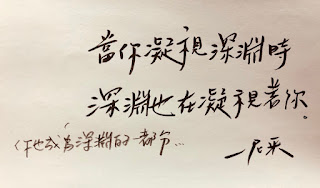 當你凝視深淵時
深淵也在凝視著你。
（你也成為深淵的一部分…
—尼采